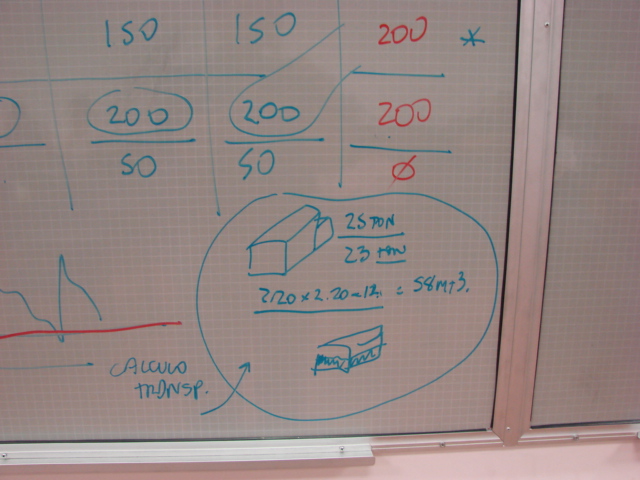 150 150 200 *
200 200 200
50 50 Ø
25 TON
23 TON
2.20 x 2.20 x 12 = 58mt3.
CALCULO
TRANSP.